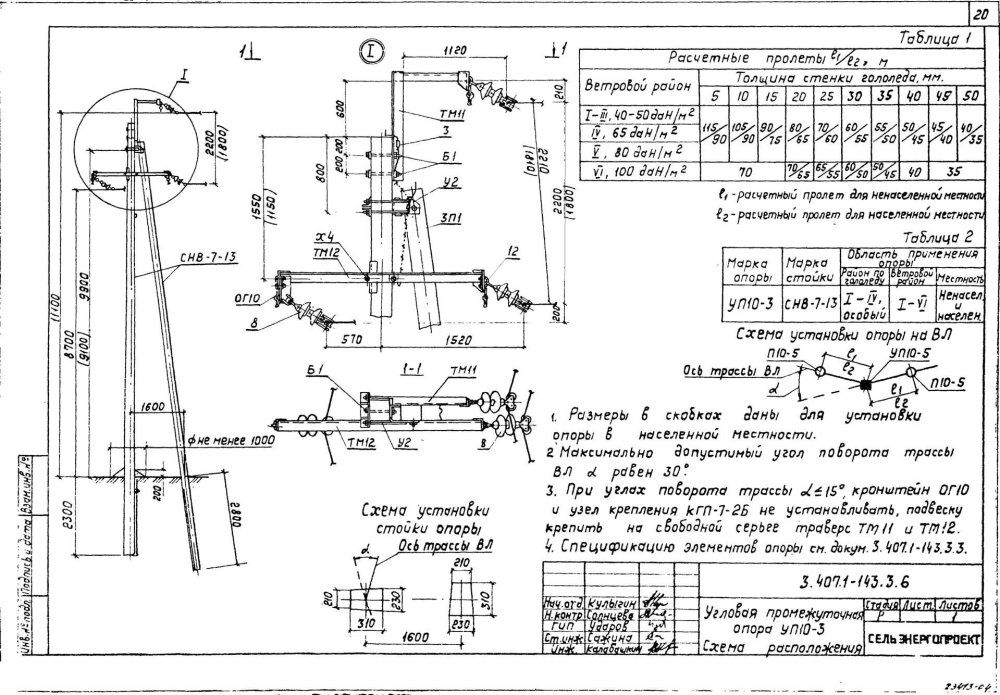 20
Таблица 1
Расчетные пролеты l1/l2, м
Ветровой район
Толщина стенки гололеда, мм.
5 10 15 20 25 30 35 40 45 50
I-III, 40-50 даН/м²
IV, 65 даН/м²
V, 80 даН/м²
115/90 105/90 90/75 80/65 70/60 60/55 55/50 50/45 45/40 40/35
VI, 100 даН/м²
70 70/65 65/55 60/50 50/45 40 35
l1-расчетный пролет для ненаселенной местности
l2-расчетный пролет для населенной местности
Таблица 2
Марка опоры
Марка стойки
Область применения опоры
Район по гололеду
Ветровой район
Местность
УП10-3
СНВ-7-13
I-IV, особый
I-VI
Ненасел. и населен.
Схема установки опоры на ВЛ
П10-5
УП10-5
l1
l2
Ось трассы ВЛ
α
l1
l2
П10-5
1. Размеры в скобках даны для установки
опоры в населенной местности.
2 Максимально допустимый угол поворота трассы
ВЛ α равен 30°.
3. При углах поворота трассы α≤15°, кронштейн ОГ10
и узел крепления КГП-7-2Б не устанавливать, подвеску
крепить на свободной серьге траверс ТМ11 и ТМ12.
4. Спецификацию элементов опоры см. докум. 3.407.1-143.3.3.
I
2200
(1800)
СНВ-7-13
(11100
9900
8700
(9100)
1600
ф не менее 1000
200
2300
2800
1
I
1
1120
600
200
200
800
1550
(1150)
ТМ11
3
Б1
У2
ЗП1
Х4
ТМ12
12
ОГ10
8
210
2210
(1810)
2200
(1800)
200
570
1520
Б1
1-1
ТМ11
ТМ12
У2
8
Схема установки
стойки опоры
Ось трассы ВЛ
α
210
230
310
210
310
230
1600
3.407.1-143.3.6
Нач.отд. Кулыгин
Н.контр Солнцева
ГИП Ударов
Ст.инж. Сажина
Инж. Калабашкин
Угловая промежуточная
опора УП10-3
Схема расположения
Стадия Лист Листов
Р 1
СЕЛЬЭНЕРГОПРОЕКТ
Инв.№подл. Подпись и дата Взам.инв.№
23473-04